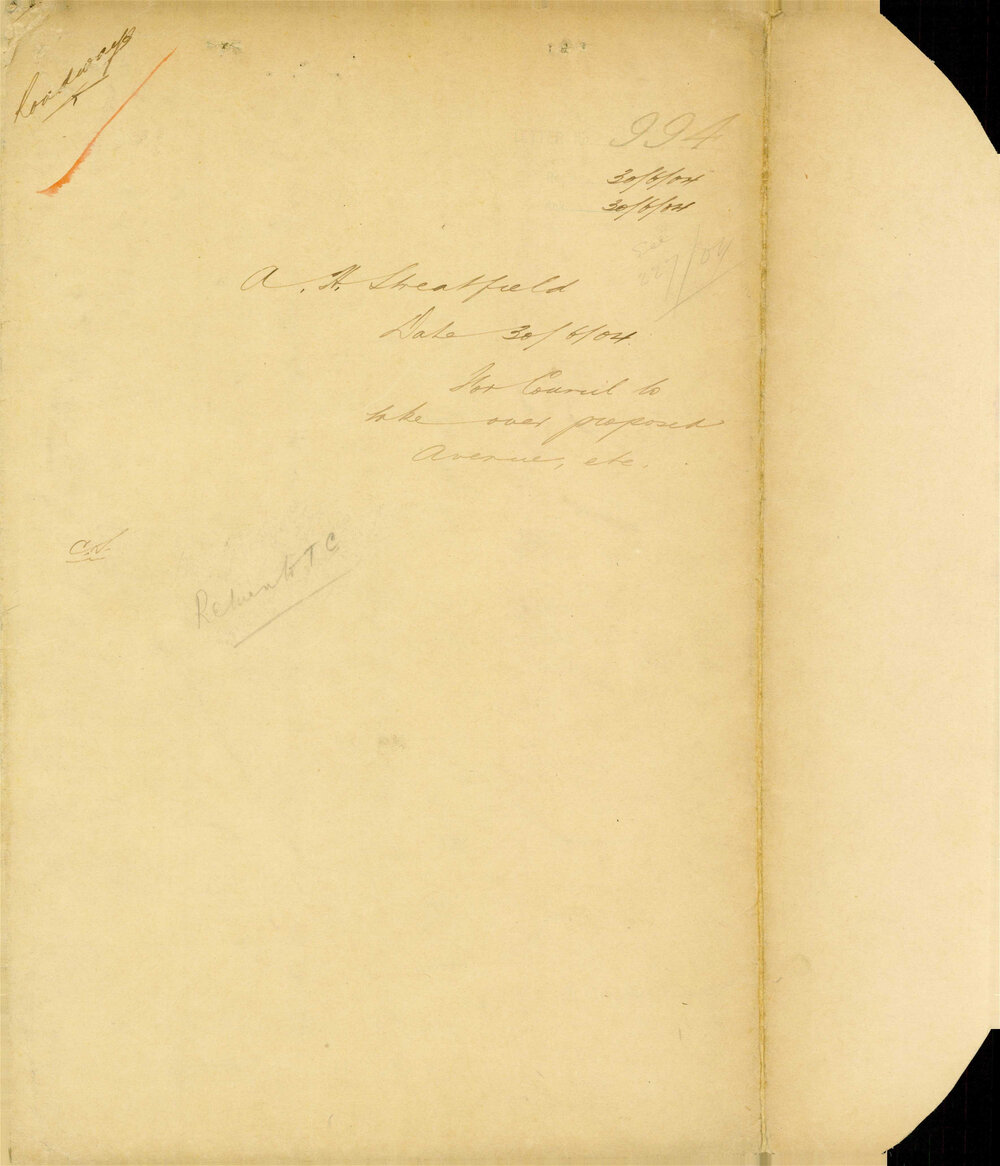 Roadways
994
30/6/04
30/6/04
See
227/04
A. H. Streatfield
Date 30/6/04
For Council to
take over proposed
Avenue, etc.
Return to T C